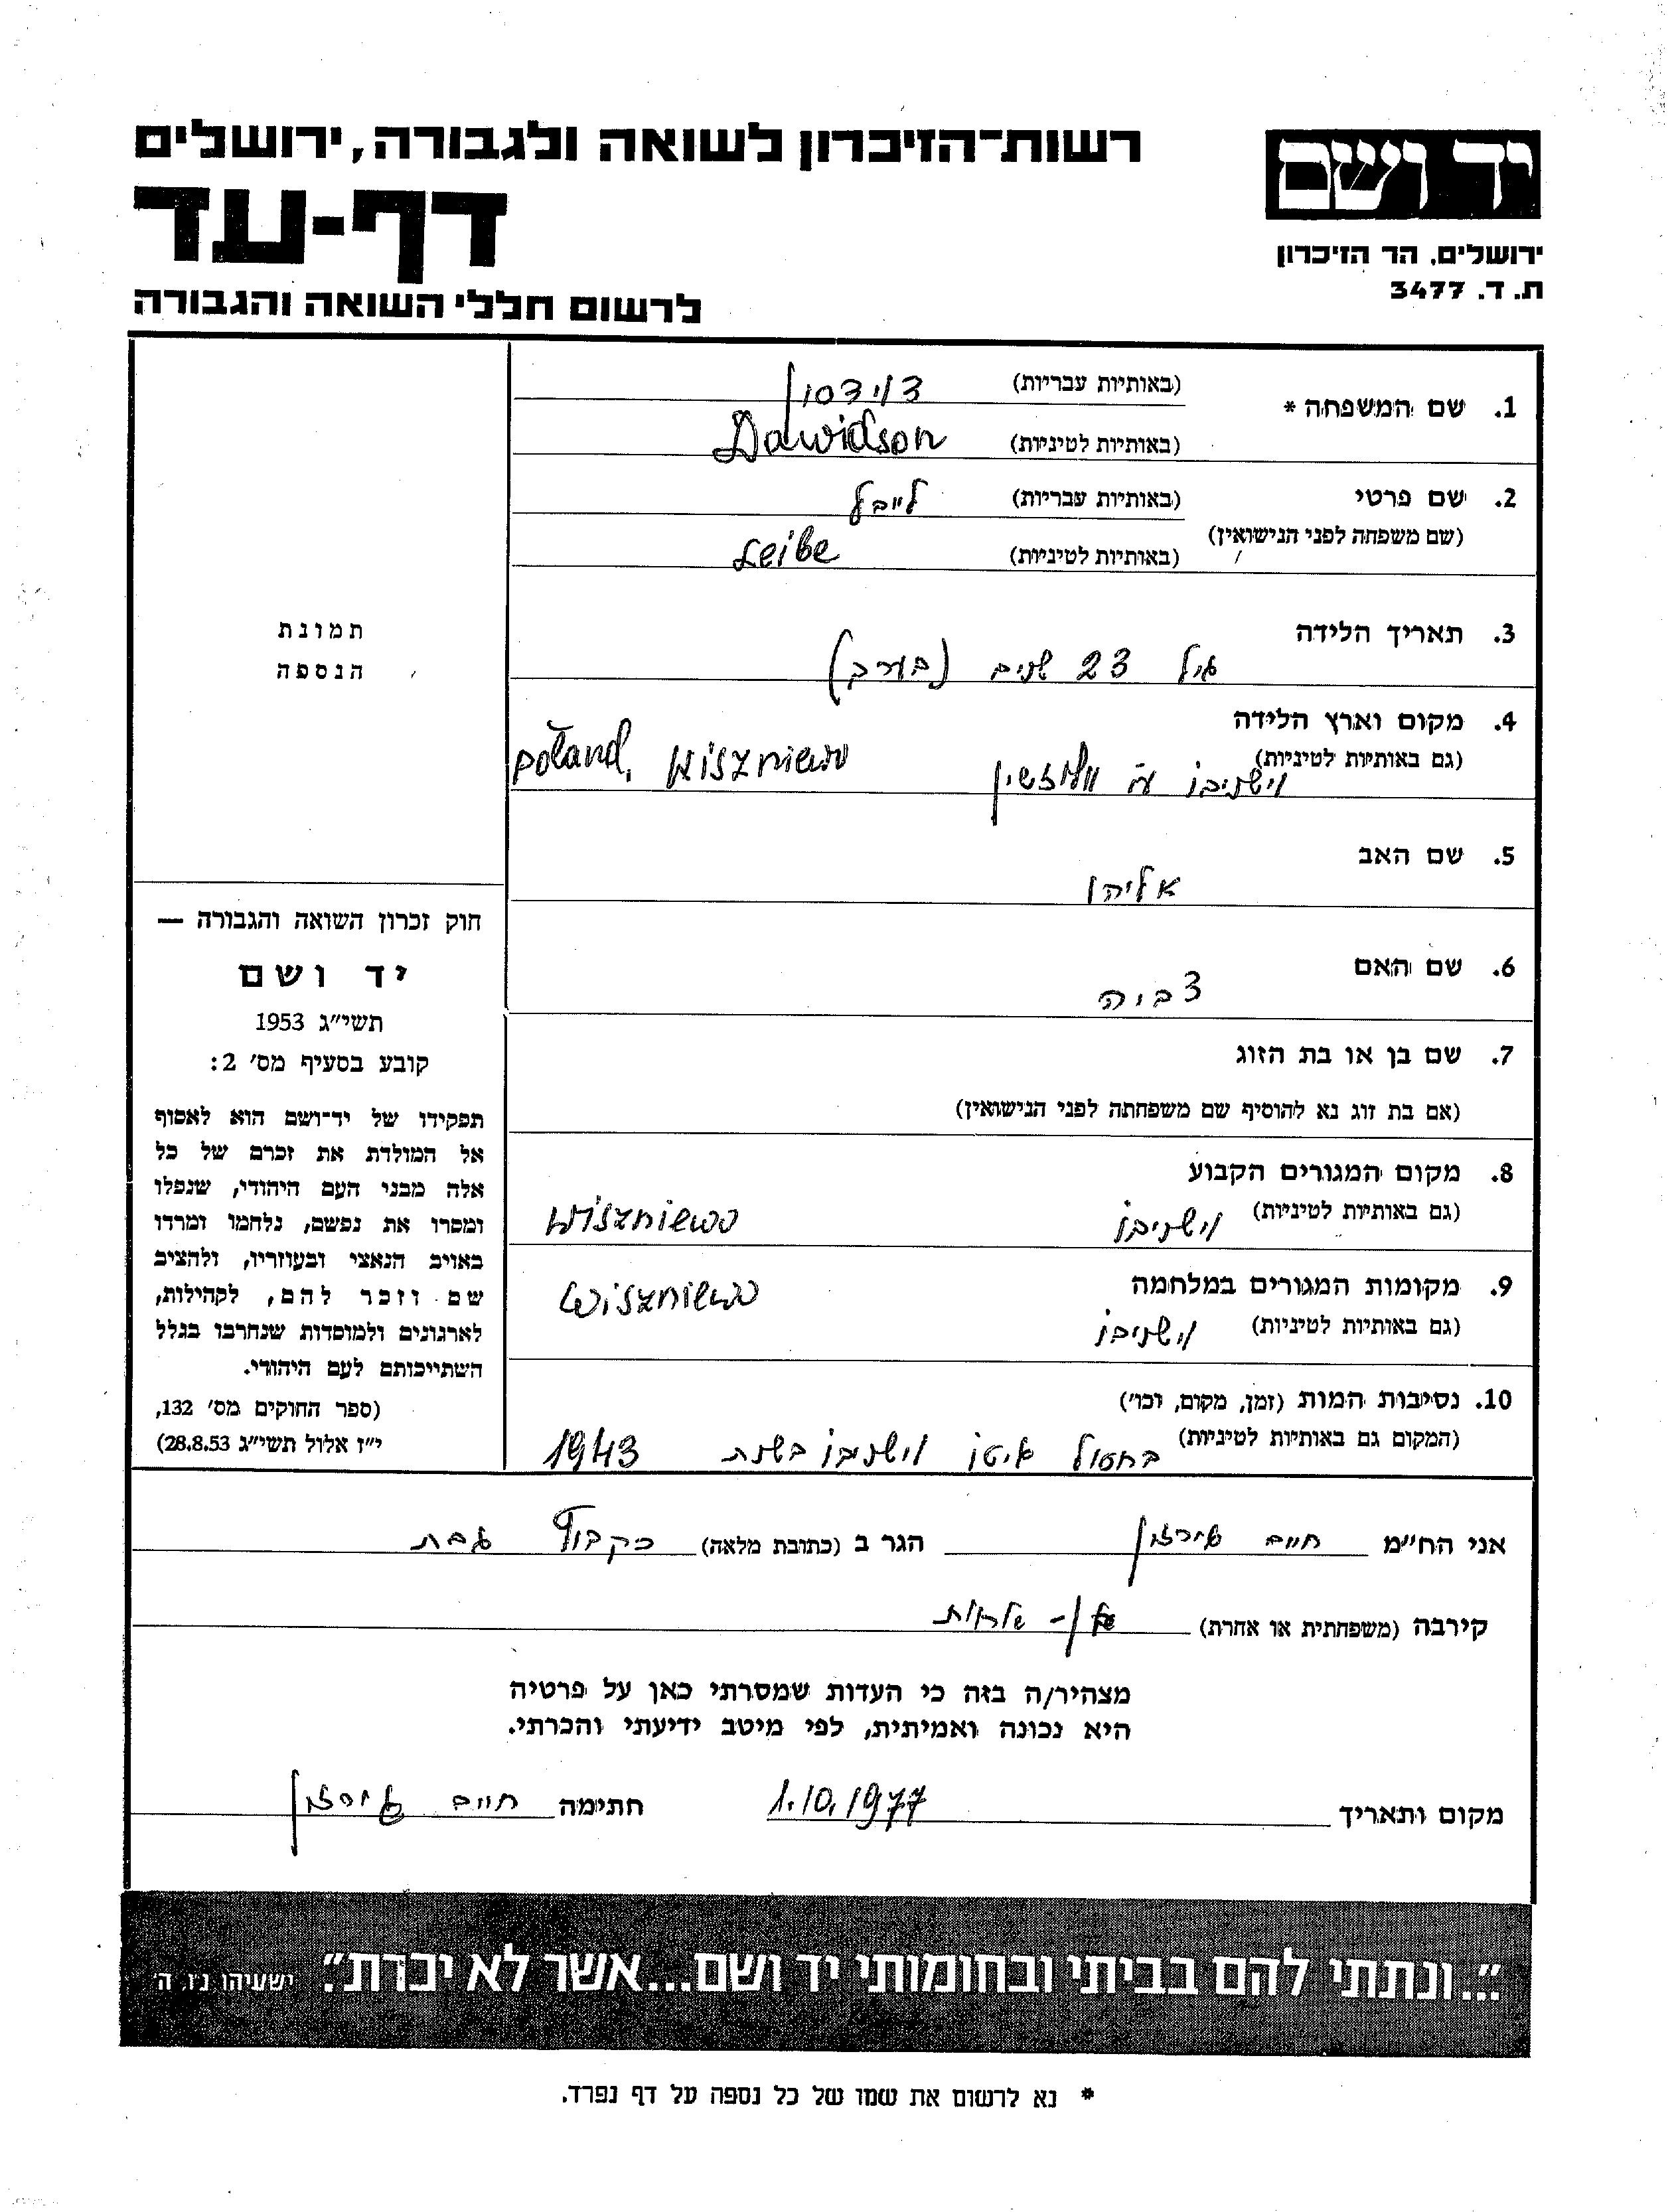 רשות־הזיכרון לשואה ולגבורה, ירושלים
דף-עד
לרשום חללי השואה והגבורה
יד ושם
ירושלים, הר הזיכרון
ת. ד. 3477
1. שם המשפחה * (באותיות עבריות) דוידסון
(באותיות לטיניות) Dawidson
2. שם פרטי (באותיות עבריות) לייבל
(שם משפחה לפני הנישואין) (באותיות לטיניות) Leibe
3. תאריך הלידה
גיל 23 שנים (בערך)
4. מקום וארץ הלידה
(גם באותיות לטיניות) Poland, Wiszniewo
וישניבו ע״י וולוז׳ין
5. שם האב
אליהו
6. שם האם
צביה
7. שם בן או בת הזוג
(אם בת זוג נא להוסיף שם משפחתה לפני הנישואין)
8. מקום המגורים הקבוע
(גם באותיות לטיניות) וישניבו Wiszniewo
9. מקומות המגורים במלחמה
(גם באותיות לטיניות) וישניבו Wiszniewo
10. נסיבות המות (זמן, מקום, וכו׳)
(המקום גם באותיות לטיניות) בחסול גיטו וישניבו בשנת 1943
תמונת
הנספה
חוק זכרון השואה והגבורה —
יד ושם
תשי״ג 1953
קובע בסעיף מס׳ 2:
תפקידו של יד־ושם הוא לאסוף
אל המולדת את זכרם של כל
אלה מבני העם היהודי, שנפלו
ומסרו את נפשם, נלחמו ומרדו
באויב הנאצי ובעוזריו, ולהציב
שם וזכר להם, לקהילות,
לארגונים ולמוסדות שנחרבו בגלל
השתייכותם לעם היהודי.
(ספר החוקים מס׳ 132,
י״ז אלול תשי״ג 28.8.53)
אני הח״מ חיים הגר ב (כתובת מלאה) בקבוץ גבת
קירבה (משפחתית או אחרת)
מצהיר/ה בזה כי העדות שמסרתי כאן על פרטיה
היא נכונה ואמיתית, לפי מיטב ידיעתי והכרתי.
מקום ותאריך 1.10.1977 חתימה חיים
״...ונתתי להם בביתי ובחומותי יד ושם...אשר לא יכרת״. ישעיהו נ׳ו, ה׳
* נא לרשום את שמו של כל נספה על דף נפרד.